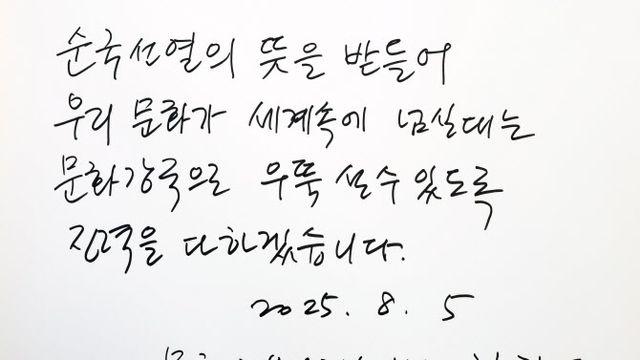 순국선열의 뜻을 받들어
우리 문화가 세계속에 넘실대는
문화강국으로 우뚝 설수 있도록
진력을 다하겠습니다.
2025. 8. 5